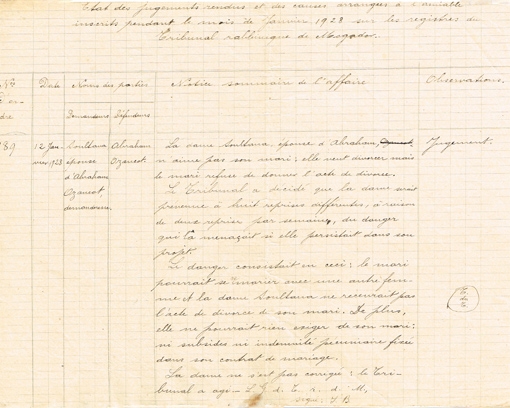 Etat des jugements rendus et des causes arrangées à l'amiable
inscrits pendant le mois de Janvier 1928 sur les registres du
Tribunal rabbinique de Mogador.
Date
Noms des parties
Notice sommaire de l'affaire
Observations.
dre
Demandeurs
Défendeurs
89
12 Jan-
vier 1928
Soultana
épouse
d'Abraham
demanderesse.
Abraham
La dame Soultana, épouse d'Abraham,
n'aime pas son mari; elle veut divorcer mais
le mari refuse de donner l'acte de divorce.
Le Tribunal a décidé que la dame serait
prévenue à huit reprises différentes, à raison
de deux reprises par semaine, du danger
qui la menaçait si elle persistait dans son
projet.
Le danger consistait en ceci: le mari
pourrait se marier avec une autre fem-
me et la dame Soultana ne recevrait pas
l'acte de divorce de son mari. De plus,
elle ne pourrait rien exiger de son mari:
ni subsides ni indemnité pécuniaire fixée
dans son contrat de mariage.
La dame ne s'est pas corrigée: le Tri-
bunal a agi
Jugement.